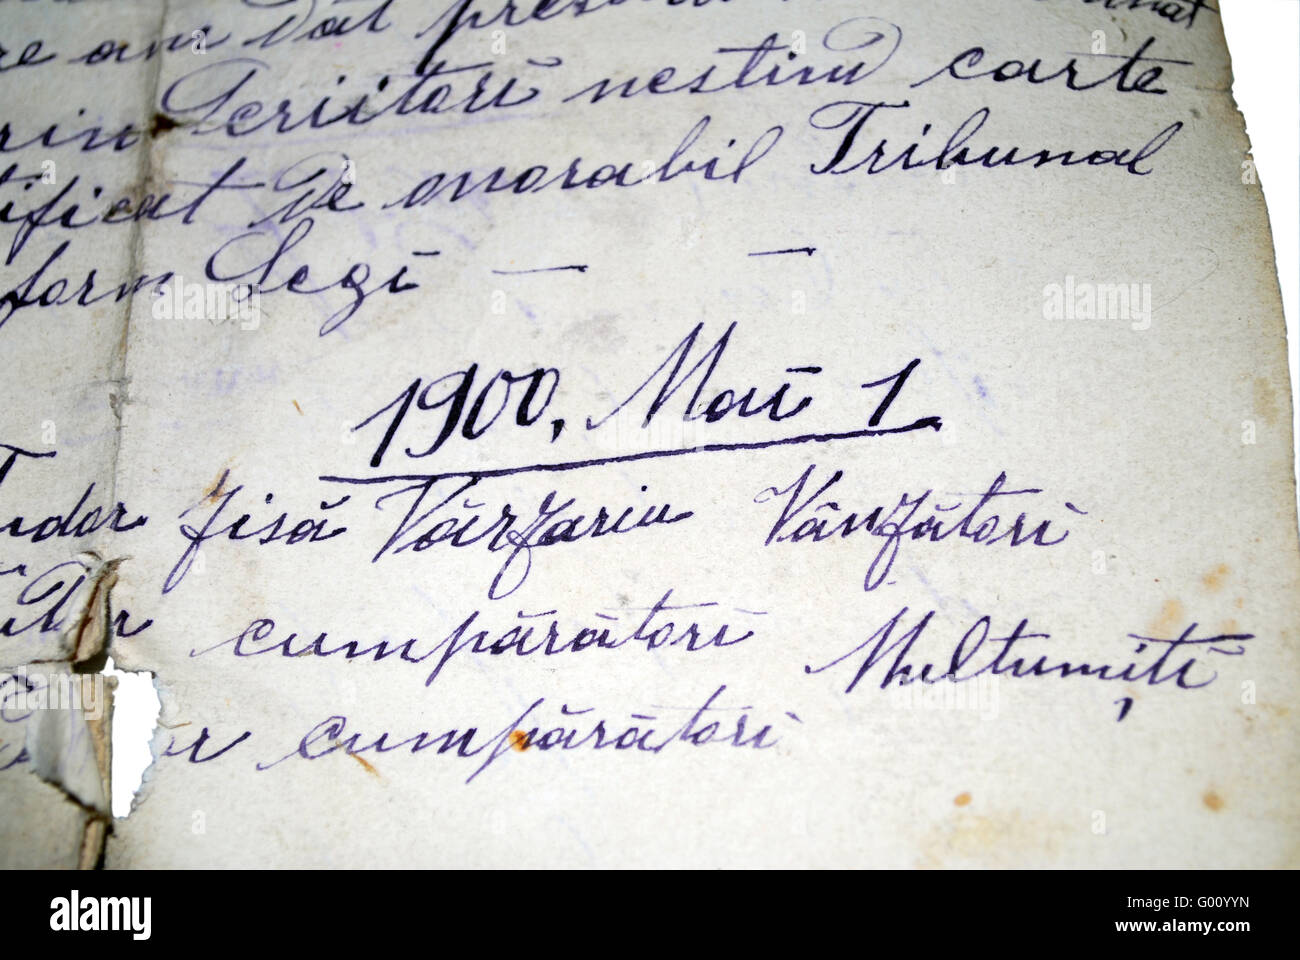 re am dat
rin Scriitori nestiind carte
tificat de onorabil Tribunal
form Legi — —
1900, Mai 1
Tudor zisă Vârzariu Vânzători
cumpărători Multumiți
r cumpărători
alamy
alamy
alamy
alamy
Image ID: G00YYN
www.alamy.com